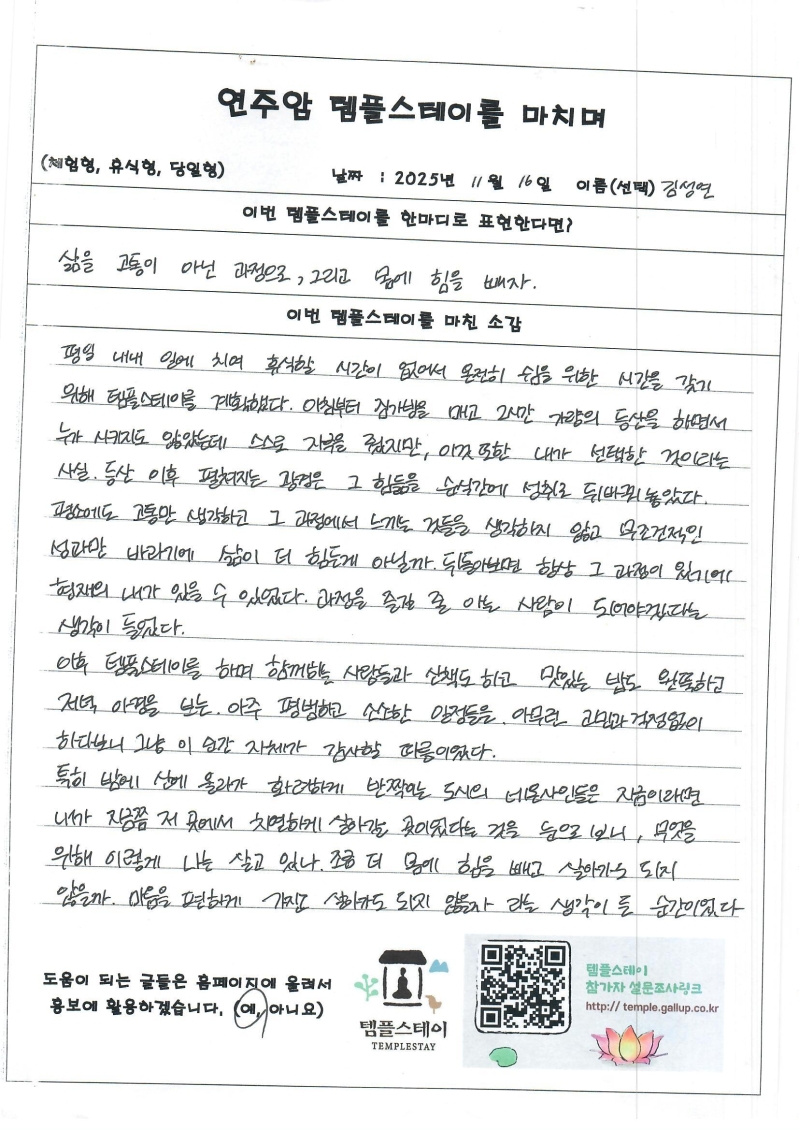 연주암 템플스테이를 마치며
(체험형, 휴식형, 당일형) 날짜 : 2025년 11월 16일 이름(선택) 김성연
이번 템플스테이를 한마디로 표현한다면?
삶을 고통이 아닌 과정으로, 그리고 몸에 힘을 빼자.
이번 템플스테이를 마친 소감
평일 내내 일에 치여 휴식할 시간이 없어서 온전히 쉼을 위한 시간을 갖기
위해 템플스테이를 계획했다. 아침부터 짐가방을 매고 2시간 가량의 등산을 하면서
누가 시키지도 않았는데 스스로 자극을 줬지만, 이것 또한 내가 선택한 것이라는
사실. 등산 이후 펼쳐지는 광경은 그 힘듦을 순식간에 성취로 뒤바꿔놓았다.
평소에도 고통만 생각하고 그 과정에서 느끼는 것들을 생각하지 않고 무조건적인
성과만 바라기에 삶이 더 힘든게 아닐까. 뒤돌아보면 항상 그 과정이 있기에
현재의 내가 있을 수 있었다. 과정을 즐길 줄 아는 사람이 되어야겠다는
생각이 들었다.
이후 템플스테이를 하며 함께하는 사람들과 산책도 하고 맛있는 밥도 완뚝하고
저녁 야명을 보는. 아주 평범하고 소소한 일정들을 아무런 고민과 걱정없이
하다보니 그냥 이 순간 자체가 감사할 따름이었다.
특히 밤에 산에 올라가 화려하게 반짝이는 도시의 네온사인들은 지금이라면
내가 지금쯤 저 곳에서 치열하게 살아갈 곳이었다는 것을 눈으로 보니, 무엇을
위해 이렇게 나는 살고 있나. 조금 더 몸에 힘을 빼고 살아가도 되지
않을까. 마음을 편하게 가지고 살아가도 되지 않을까 라는 생각이 든 순간이었다
도움이 되는 글들은 홈페이지에 올려서
홍보에 활용하겠습니다. (예, 아니요)
템플스테이
TEMPLESTAY
템플스테이
참가자 설문조사링크
http:// temple.gallup.co.kr